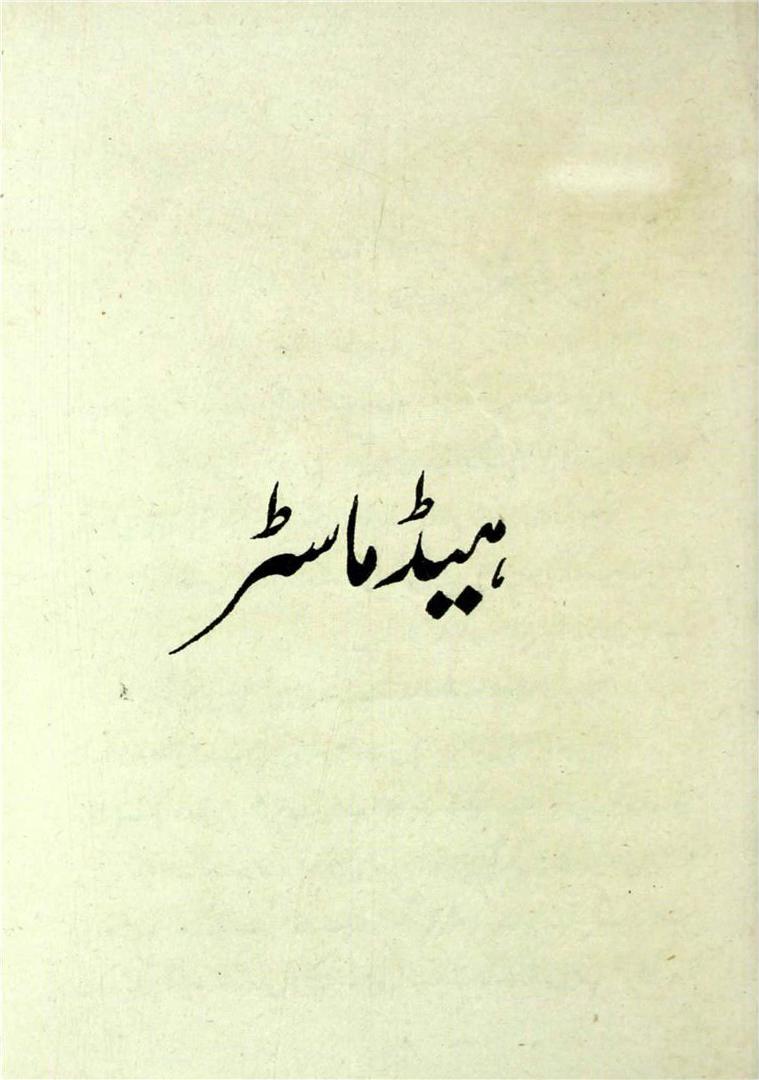 ہیڈ ماسٹر